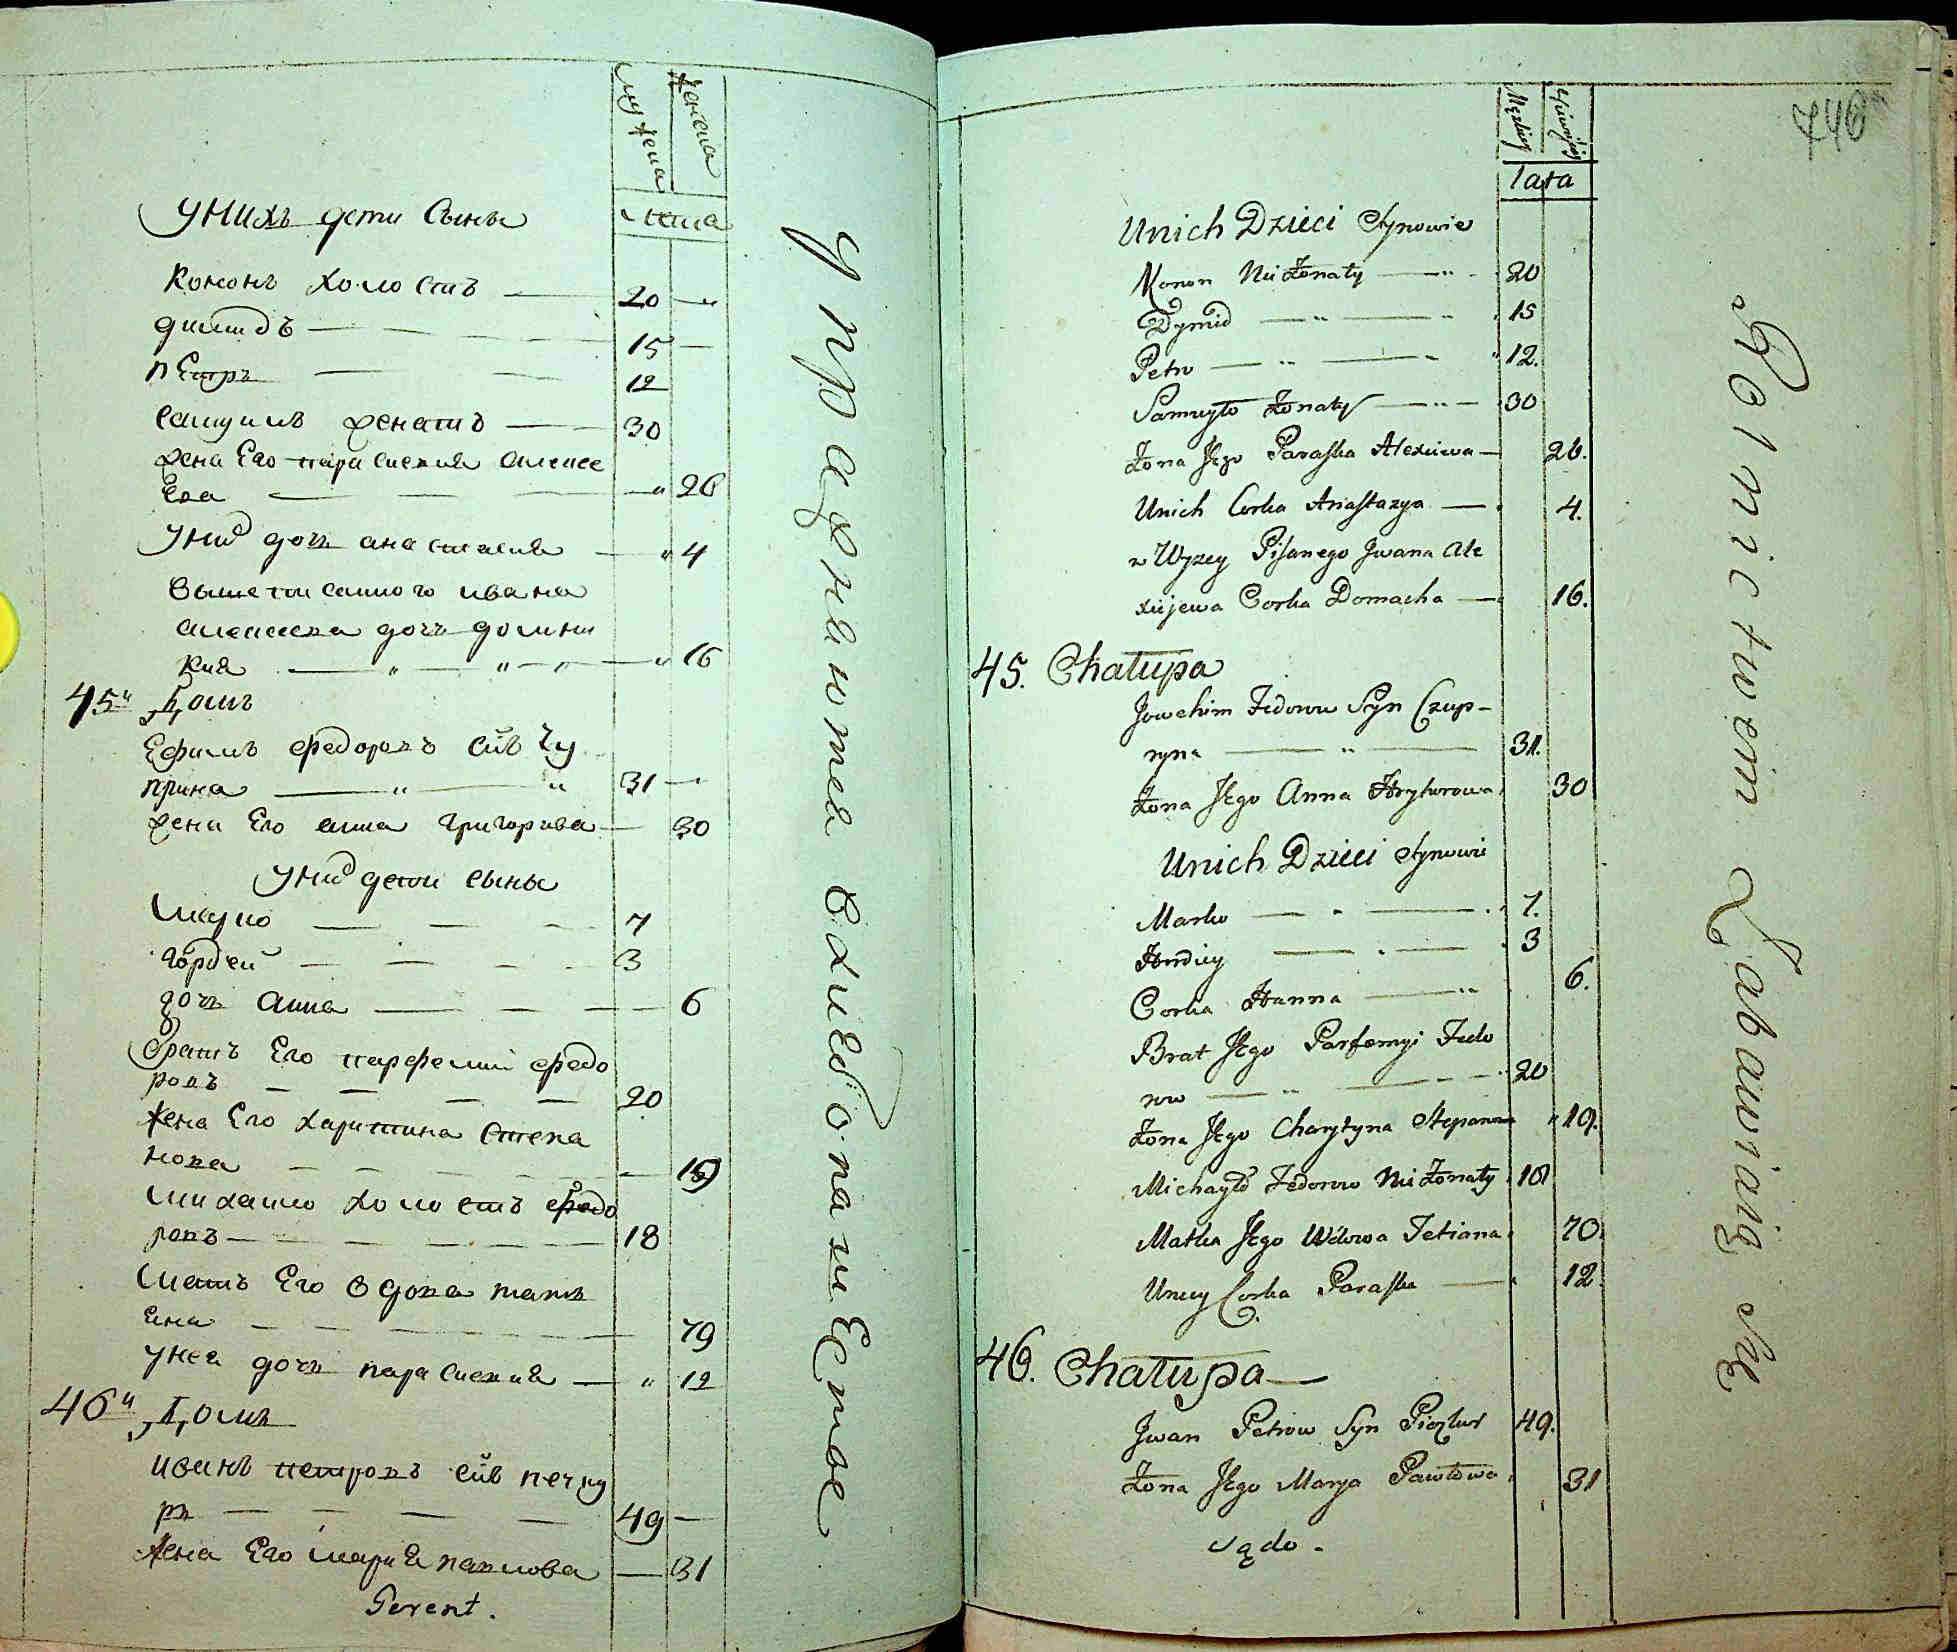 мужеска женска
лета
У нихъ дети сыны
Кононъ холостъ — 20 —"
Димидъ — 15 —
Петръ — 12
Самуилъ женатъ — 30
жена Его параскевия алексе
Ева — " 26
У ни дочь анастасия — " 4
Вышеписанного ивана
алексеева дочь домни
кия — " — " — " 16
45" Домъ
Ефимъ федоровъ сынъ Чу
прина — " — " 31 —
жена Его анна григорива — 30
У ни дети сыны
Марко — 7
Гордей — 3
дочь анна — 6
Братъ Его парфений федо
ровъ — 20
жена Его харитина степа
нова — 19
михаило холостъ федо
ровъ — 18
Мать Его вдова тать
яна — 79
У нея дочь параскевия — " 12
46" Домъ
иванъ петровъ сынъ печку
ръ — 49 —
жена Его мария павлова — 31
Gerent.
Упражняются в хлебопашестве
746
Męzkiey Żeńskiey
Lata
Unich Dzieci Synowie
Konon Nieżonaty — " 20
Dymid — " — " 15
Petro — " — 12.
Samuyło Żonaty — " — 30
Żona Jego Paraska Alexiiewa — 26.
Unich Corka Anastazya — 4.
w Wyzey Pisanego Jwana Ale
xiijewa Corka Domacha — 16.
45. Chałupa
Jowchim Fedorow Syn Czup-
ryna — " — 31.
Żona Jego Anna Hryhorowa 30
Unich Dzieci Synowie
Marko — " — 7.
Hordiey — . — 3
Corka Hanna — " 6.
Brat Jego Parfemyi Fedo
row — " — 20
Żona Jego Charytyna Stepanowa " 19.
Michayło Fedorow Nieżonaty 18
Matka Jego Wdowa Tetiana 70.
Uniey Corka Paraska — 12.
46. Chałupa —
Jwan Petrow Syn Pieczkur 49.
Żona Jego Marya Pawłowa 31
Sądo.
Rolnictwem Zabawiaią Się